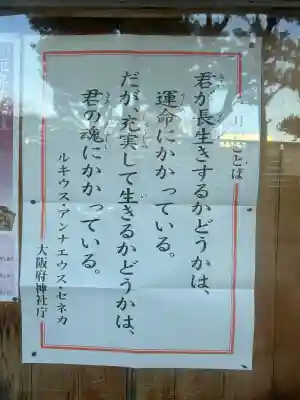 月
ことば
君が長生きするかどうかは、
運命にかかっている。
だが、充実して生きるかどうかは、
君の魂にかかっている。
ルキウス・アンナエウス・セネカ
大阪府神社庁